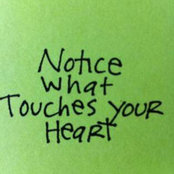 Notice
What
Touches Your
Heart